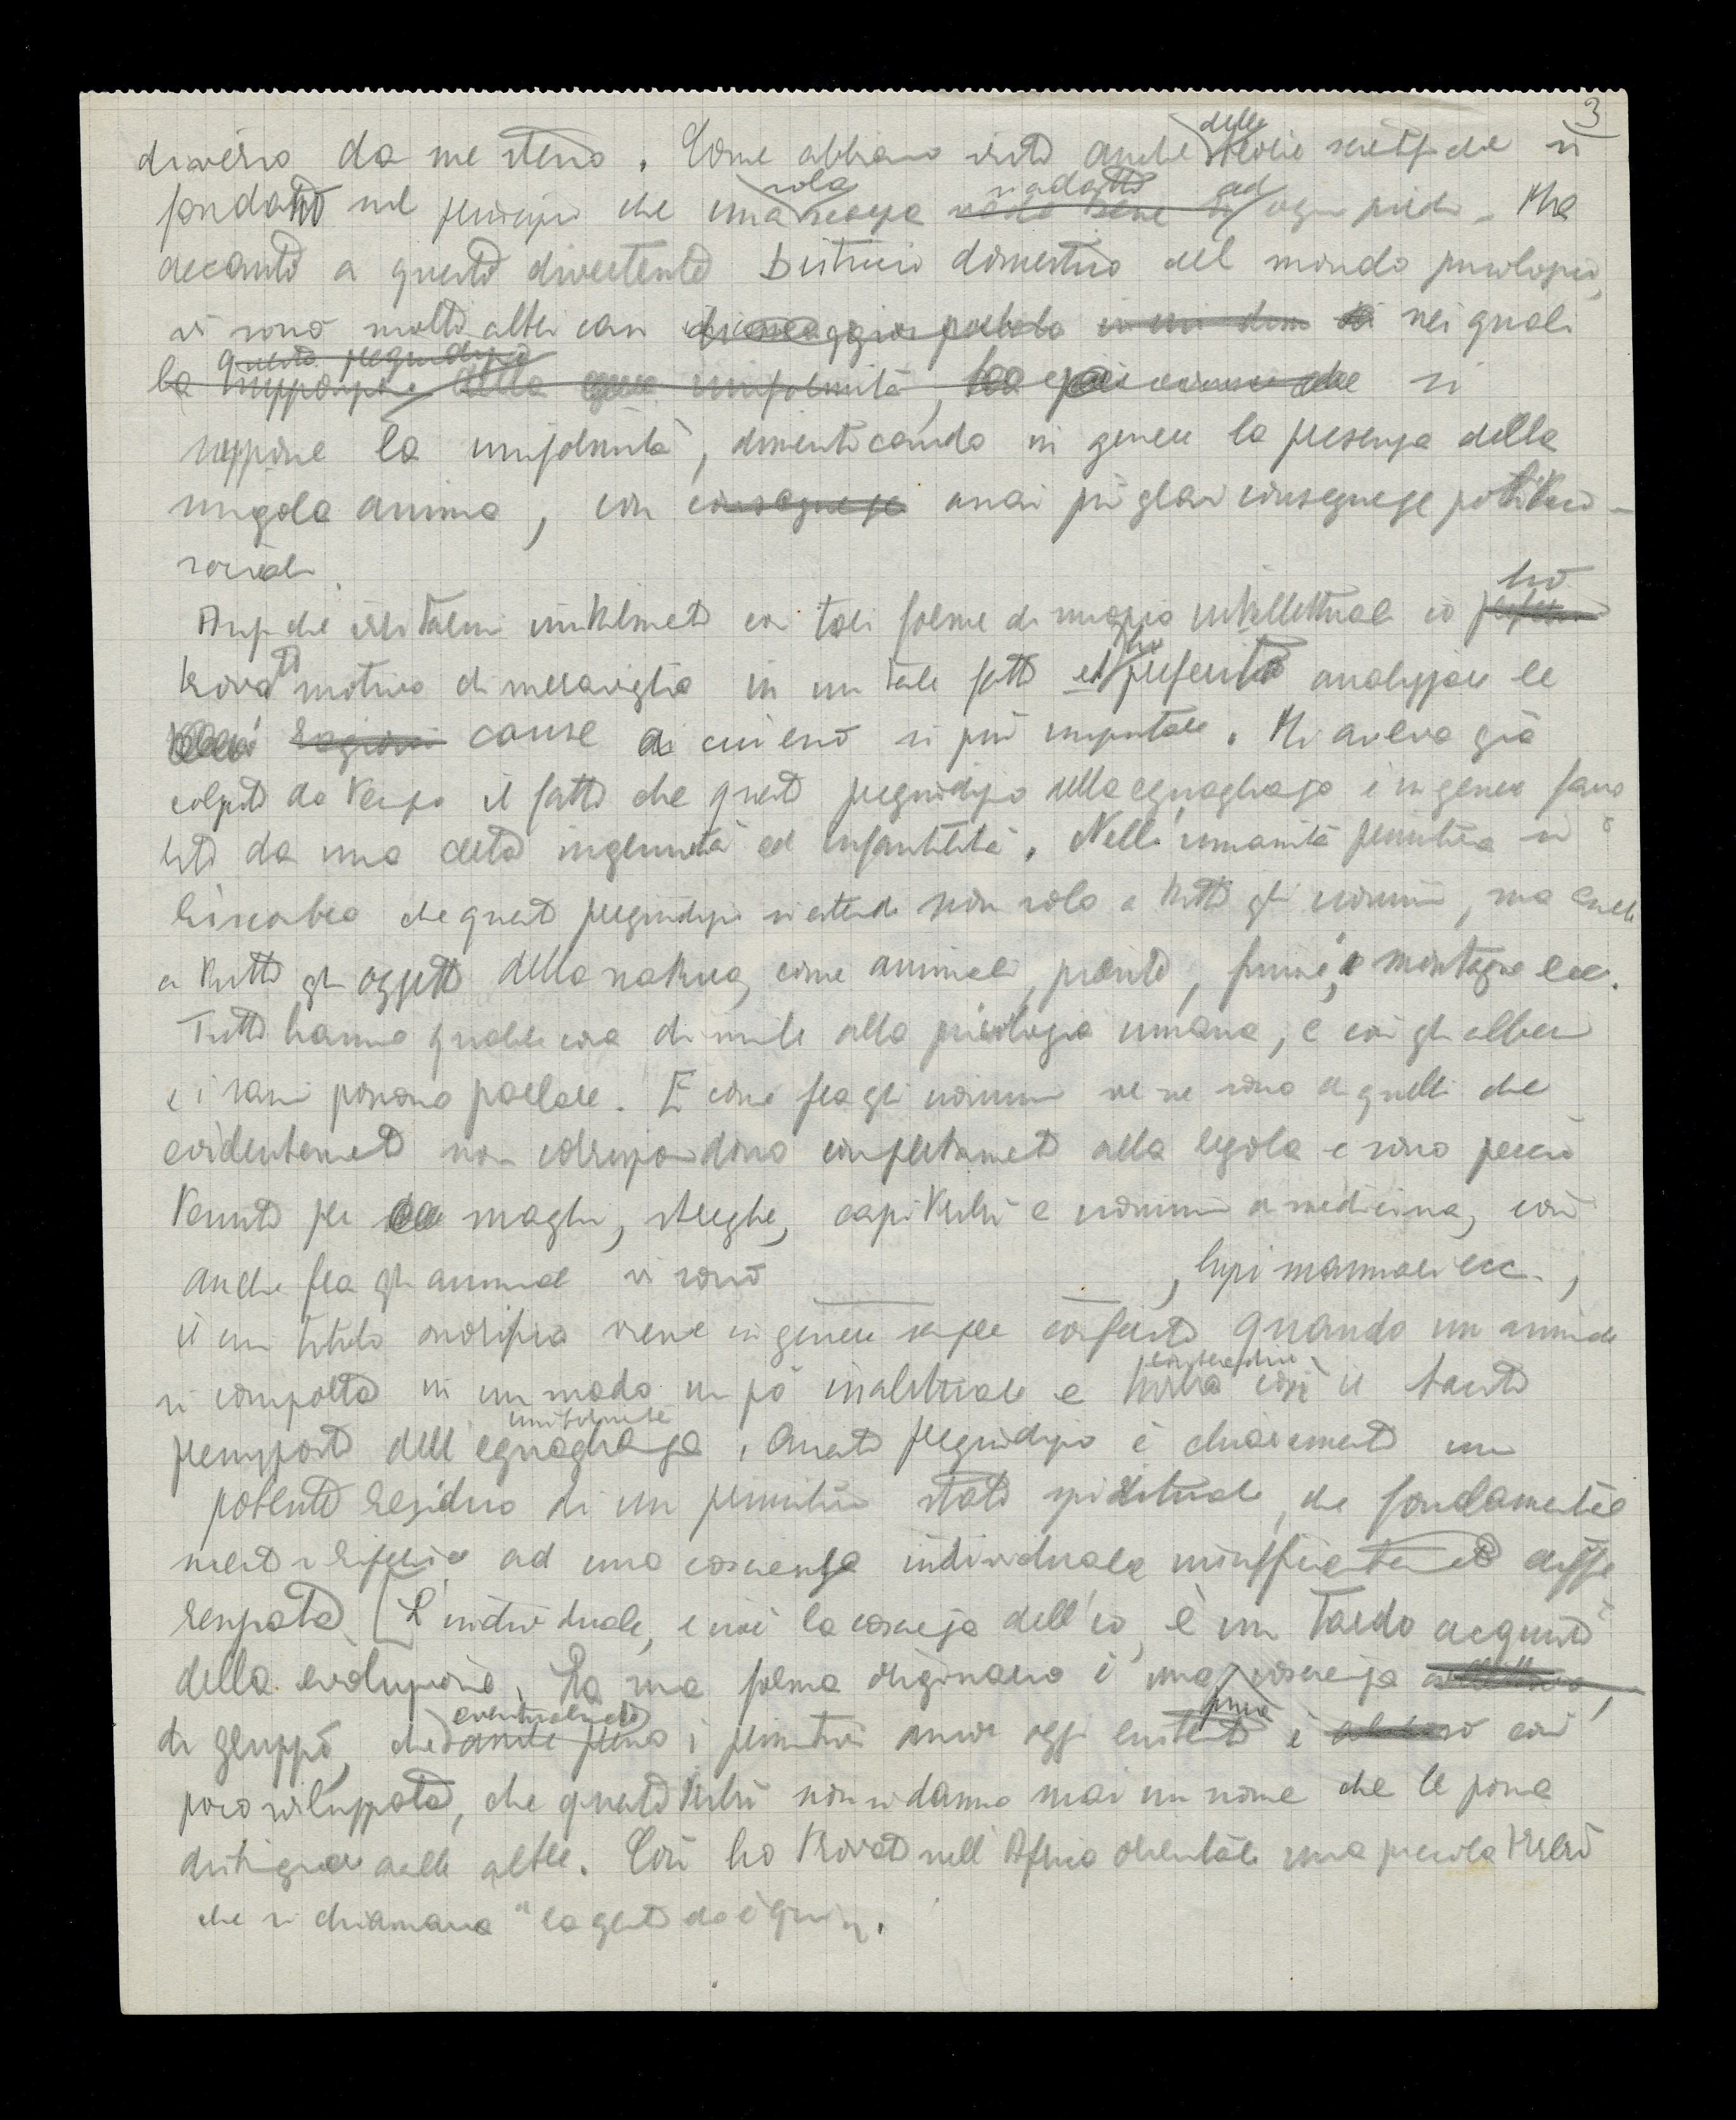 3
diverso da me stesso. Come abbiamo visto anche delle teorie scientifiche si
fondano sul principio che una sola scarpa si adatti ad ogni piede. Ma
accanto a questo divertente bisticcio domestico del mondo psicologico,
vi sono molti altri casi nei quali
questo pregiudizio
la supposizione della uniformità, si
suppone la uniformità, dimenticando in genere la presenza della
singola anima, con conseguenze assai più gravi conseguenze politico-
sociali.
Anziché irritarmi inutilmente con tali forme di miopia intellettuale io ho
trovato motivo di meraviglia in un tale fatto ed ho preferito analizzare le
ragioni cause a cui esso si può imputare. Mi aveva già
colpito da tempo il fatto che questo pregiudizio della eguaglianza è in genere favo
rito da una certa ingenuità ed infantilità. Nell'umanità primitiva si
riscontra che questo pregiudizio si estende non solo a tutti gli uomini, ma anche
a tutti gli oggetti della natura, come animali, piante, fiumi, montagne ecc.
Tutti hanno qualche cosa di simile alla psicologia umana, e così gli alberi
e i sassi possono parlare. E come fra gli uomini ve ne sono di quelli che
evidentemente non corrispondono completamente alla regola e sono perciò
tenuti per maghi, streghe, capi tribù e uomini a medicina, così
anche fra gli animali vi sono , lupi mannari ecc.,
un titolo onorifico viene in genere sempre conferito quando un animale
si comporta in un modo un pò inabituale e turba così il tacito
contraddice
presupposto dell'eguaglianza. Questo pregiudizio è chiaramente un
uniformità
potente residuo di un primitivo stato spirituale, che fondamental
mente si riferisce ad una coscienza individuale insufficientemente diffe
renziata. [L'individuale, e cioè la coscienza dell'io, è un tardo acquisto
della evoluzione. La sua forma originaria è una pura coscienza
di gruppo, che eventualmente anche presso i primitivi ancor oggi esistenti è così
poco sviluppata, che queste tribù non si danno mai un nome che le possa
distinguere dalle altre. Così ho trovato nell'Africa orientale una piccola tribù
che si chiamava "la gente che è qui".